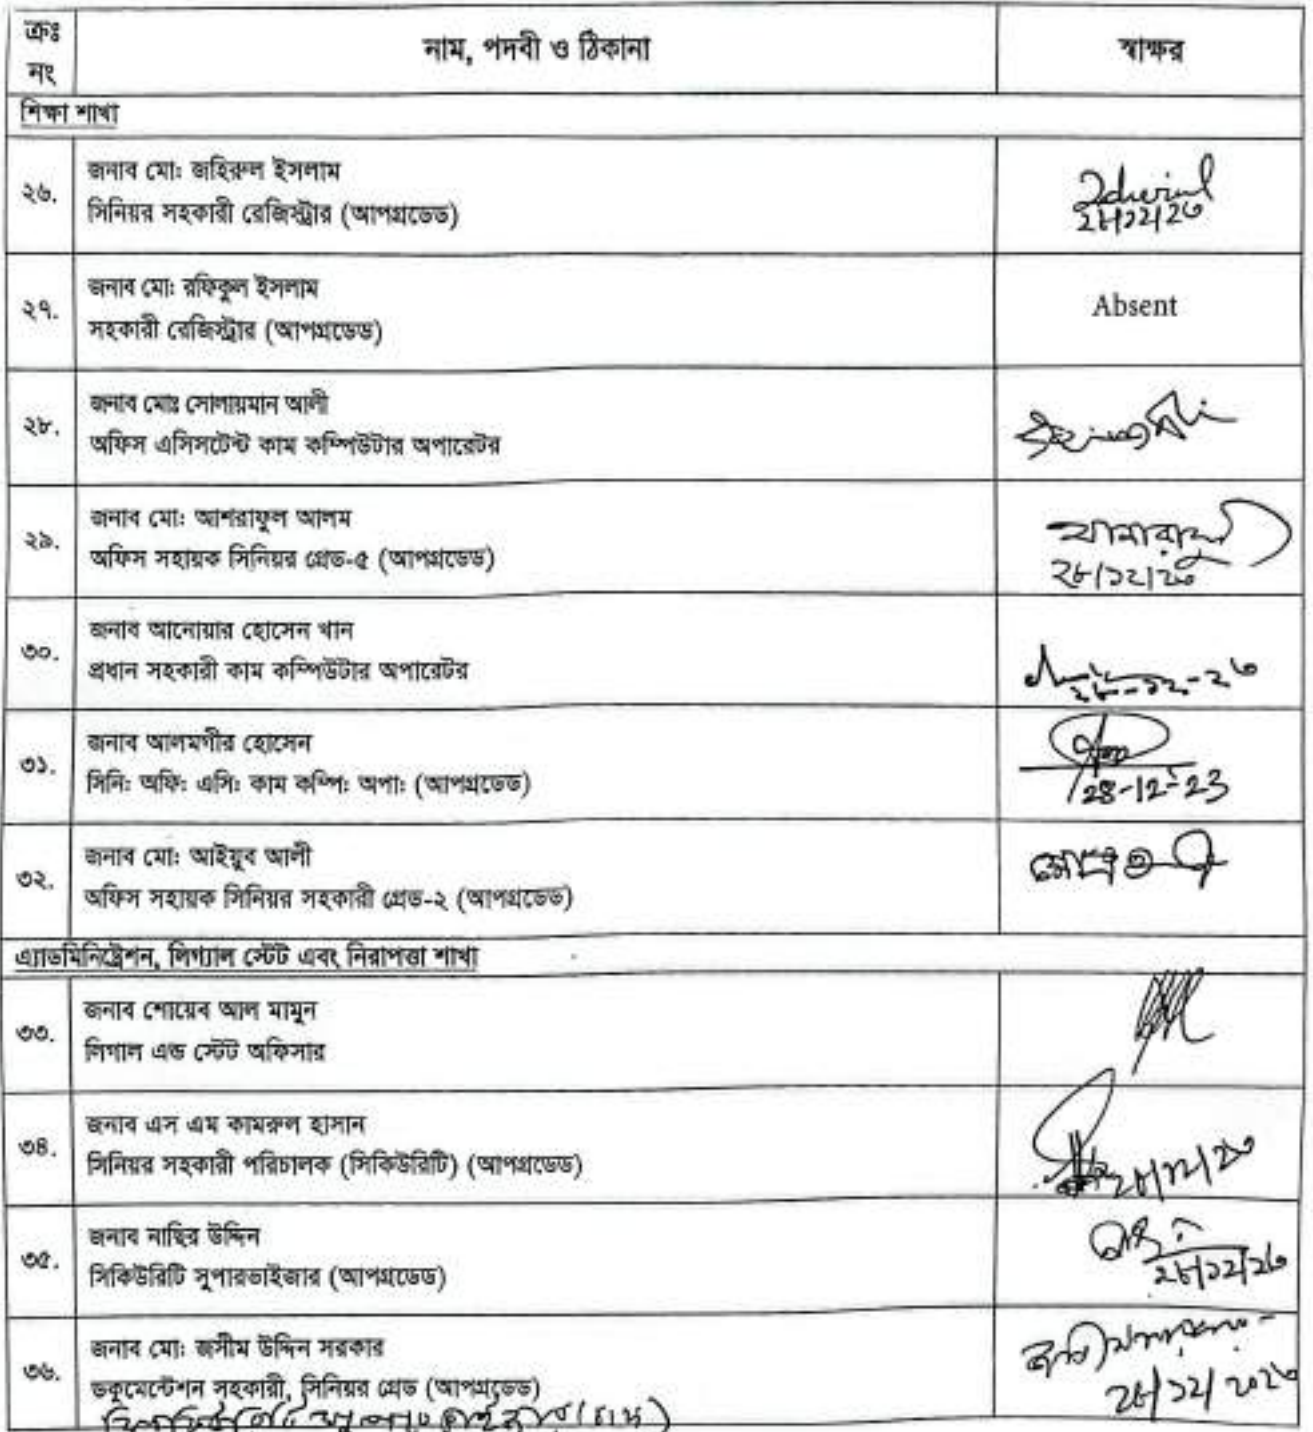 ক্রঃ নং
নাম, পদবী ও ঠিকানা
স্বাক্ষর
শিক্ষা শাখা
২৬.
জনাব মো: জহিরুল ইসলাম
সিনিয়র সহকারী রেজিস্ট্রার (আপগ্রডেড)
২৮/১২/২৩
২৭.
জনাব মো: রফিকুল ইসলাম
সহকারী রেজিস্ট্রার (আপগ্রডেড)
Absent
২৮.
জনাব মোঃ সোলায়মান আলী
অফিস এসিসটেন্ট কাম কম্পিউটার অপারেটর
২৯.
জনাব মো: আশরাফুল আলম
অফিস সহায়ক সিনিয়র গ্রেড-৫ (আপগ্রডেড)
২৮/১২/২৩
৩০.
জনাব আনোয়ার হোসেন খান
প্রধান সহকারী কাম কম্পিউটার অপারেটর
২৮-১২-২৩
৩১.
জনাব আলমগীর হোসেন
সিনি: অফি: এসি: কাম কম্পি: অপা: (আপগ্রডেড)
28-12-23
৩২.
জনাব মো: আইয়ুব আলী
অফিস সহায়ক সিনিয়র সহকারী গ্রেড-২ (আপগ্রডেড)
এ্যাডমিনিট্রেশন, লিগ্যাল স্টেট এবং নিরাপত্তা শাখা
৩৩.
জনাব শোয়েব আল মামুন
লিগাল এন্ড স্টেট অফিসার
৩৪.
জনাব এস এম কামরুল হাসান
সিনিয়র সহকারী পরিচালক (সিকিউরিটি) (আপগ্রডেড)
২৮/১২/২৩
৩৫.
জনাব নাছির উদ্দিন
সিকিউরিটি সুপারভাইজার (আপগ্রডেড)
২৮/১২/২৩
৩৬.
জনাব মো: জসীম উদ্দিন সরকার
ডকুমেন্টেশন সহকারী, সিনিয়র গ্রেড (আপগ্রডেড)
২৮/১২/২০২৩